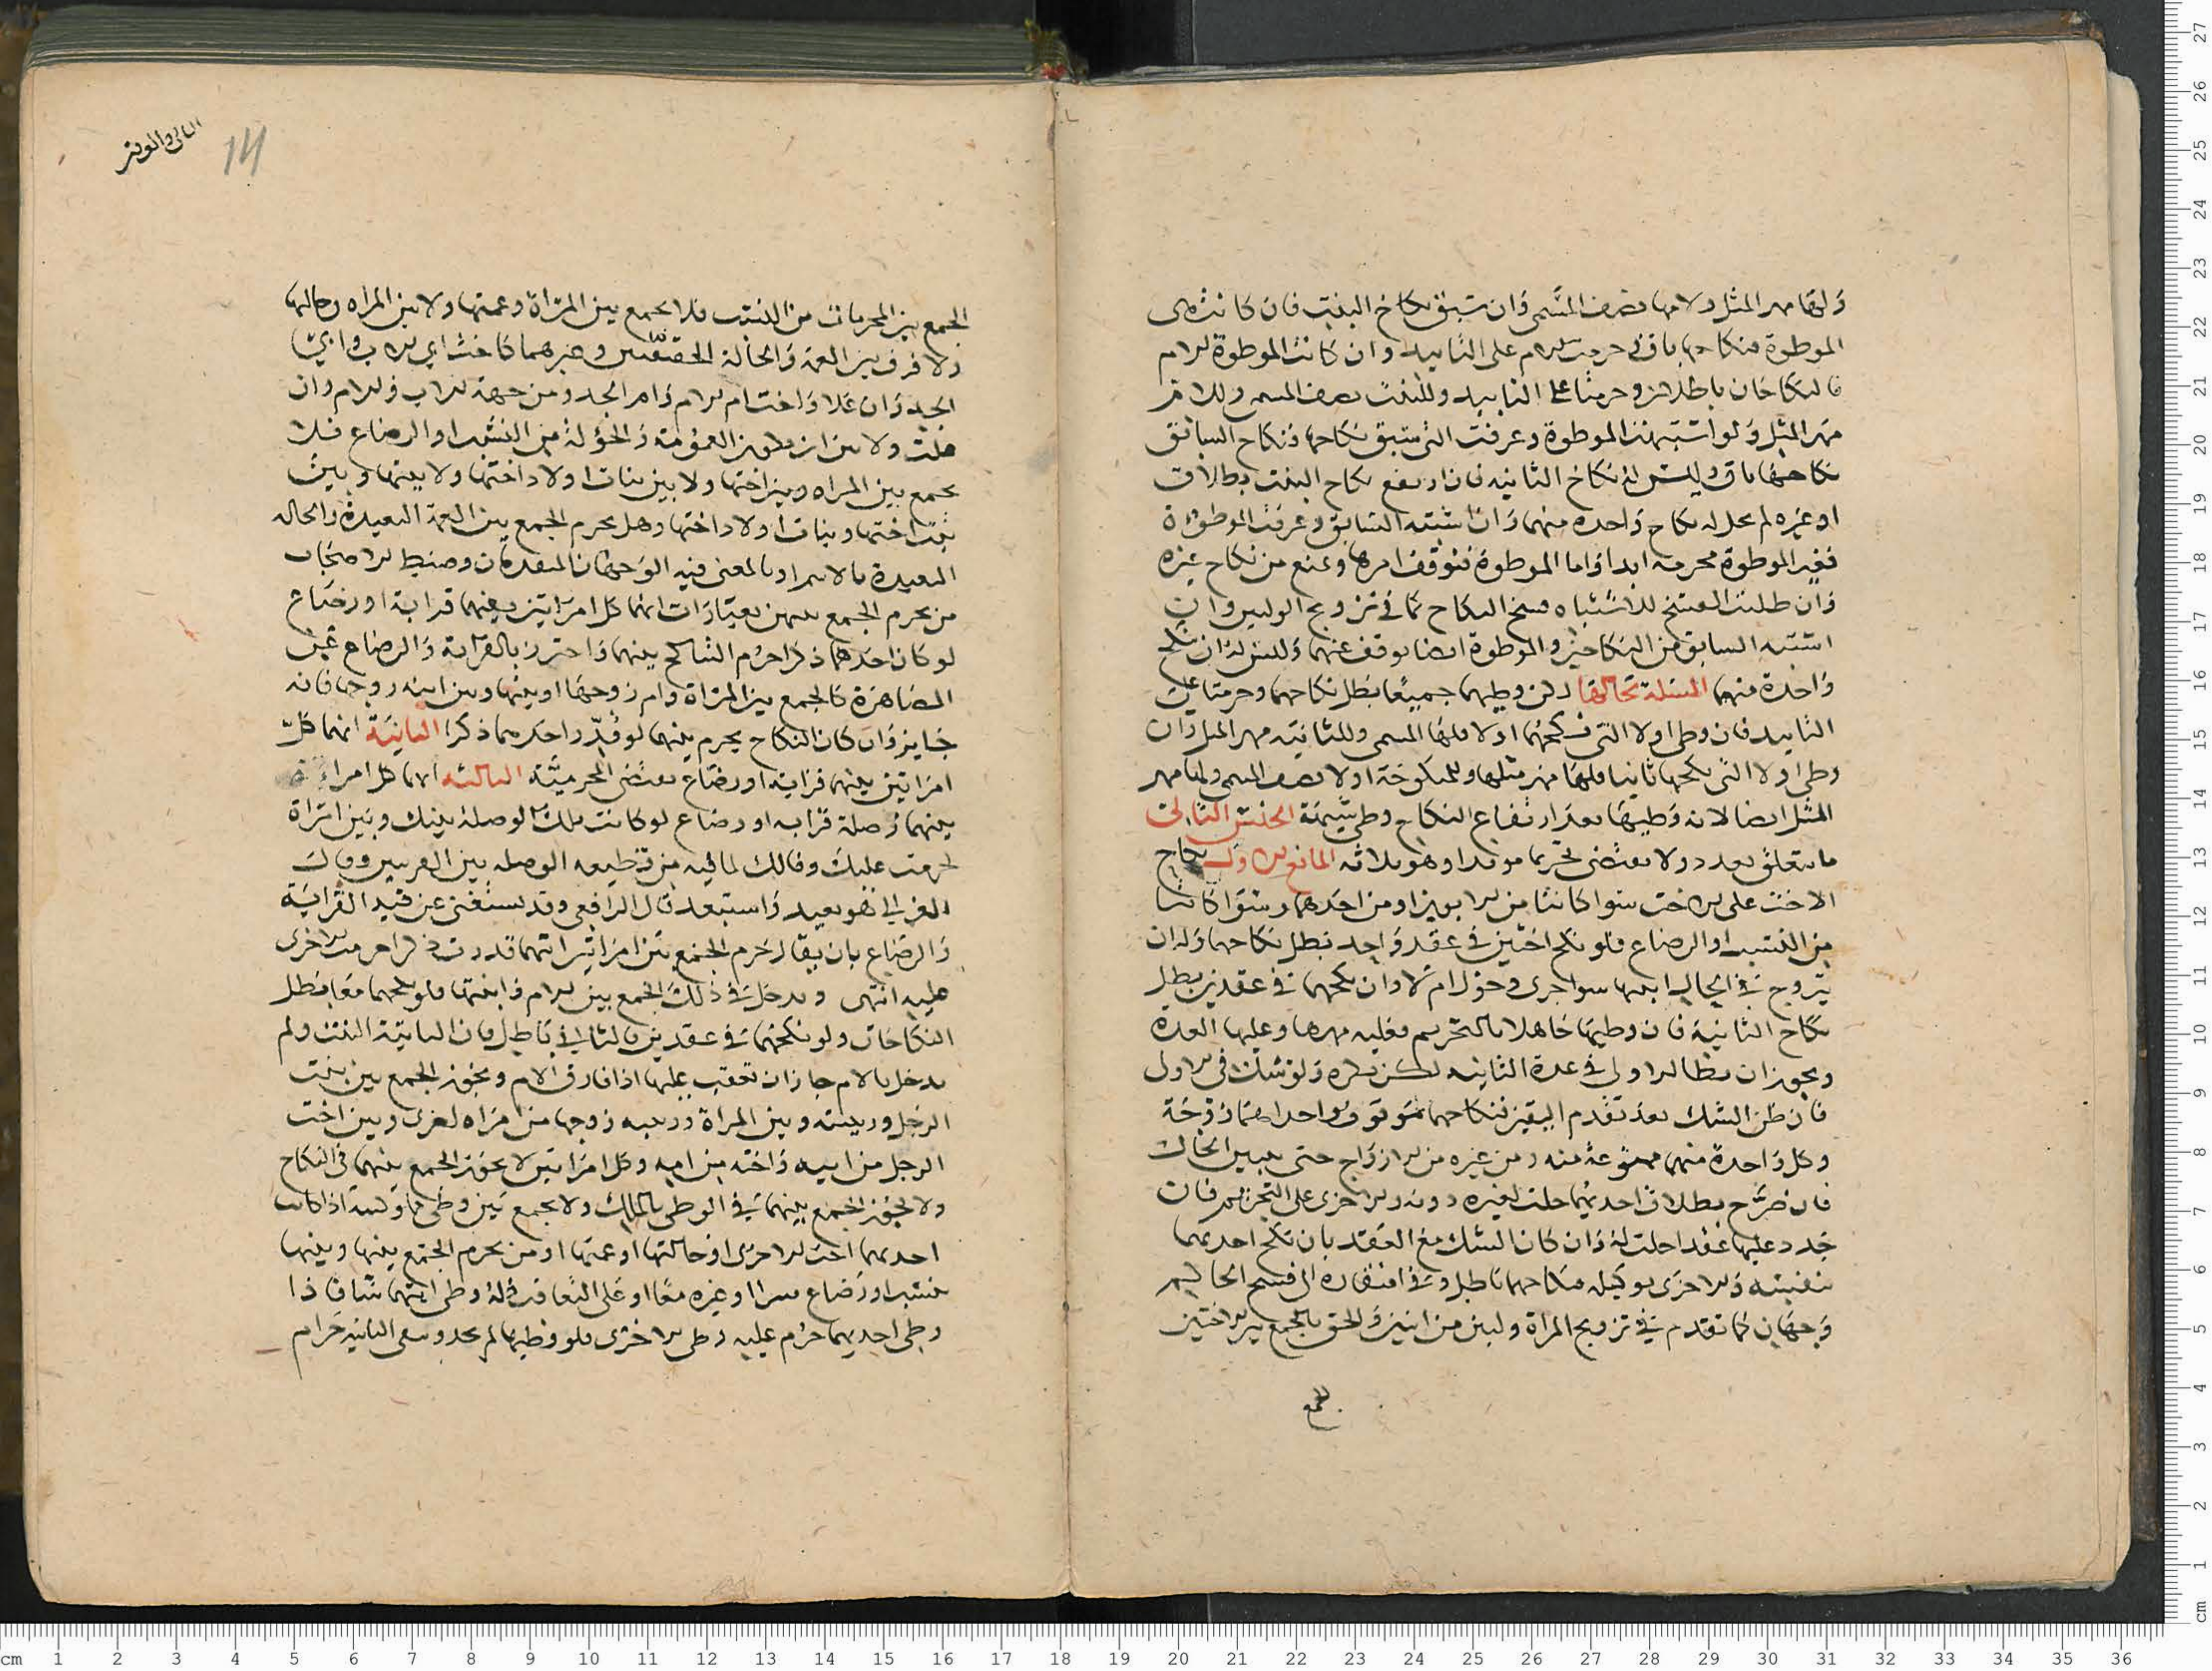 ولها مهر المثل ولامها نصف المسمى وان سبق نكاح البنت فان كانت هى
الموطوة فنكاحها باق وحرمت الام على التابيد وان كانت الموطوة الام
فالنكاحان باطلان وحرمتا على التابيد وللبنت نصف المسمى وللام
مهر المثل ولو اشتبهت الموطوة وعرفت التى سبق نكاحها فنكاح السابق
نكاحها باق وليس له نكاح الثانيه فان ارتفع نكاح البنت بطلاق
او غيره لم يحل له نكاح واحده منهما وان اشتبه السابق وعرفت الموطوة
فغير الموطوة محرمه ابدا واما الموطوة فتوقف امرها وتمنع من نكاح غيره
وان طلبت الفسخ للاشتباه فسخ النكاح كما فى تزويج الوليين وان
اشتبه السابق من النكاحين والموطوة ايضا توقف عنهما وليس له ان ينكح
واحدة منهما المسئلة بحالها لكن وطيهما جميعا بطل نكاحهما وحرمتا على
التابيد فان وطى اولا التى نكحها اولا فلها المسمى وللثانيه مهر المثل وان
وطى اولا التى نكحها ثانيا فلها مهر مثلها وللمنكوحة اولا نصف المسمى ولها مهر
المثل ايضا لانه وطيها بعد ارتفاع النكاح وطى شبهة الجنس الثانى
ما يتعلق بعدد ولا يقتضى تحريما موبدا وهو ثلاثه المانع الاول نكاح
الاخت على الاخت سوا كانتا من الابوين او من احدهما وسوا كانتا
من النسب او الرضاع فلو نكح اختين فى عقد واحد بطل نكاحهما وله ان
يتزوج فى الحال ايتهما سوا جرى دخول ام لا وان نكحهما فى عقدين بطل
نكاح الثانية فان وطيها جاهلا بالتحريم فعليه مهرها وعليها العدة
ويجوز ان يطا الاولى فى عدة الثانيه لكن يكره ولو شك فى الاول
فان ظن الشك بعد تقدم اليقين فنكاحهما موقوف واحداهما زوجة
وكل واحدة منهما ممنوعة منه ومن غيره من الازواج حتى يبين الحال
فان صرح بطلاق احديهما حلت لغيره دونه والاخرى على التحريم فان
جدد عليها عقدا حلت له وان كان الشك مع العقد بان نكح احديهما
بنفسه والاخرى بوكيله فنكاحهما باطل وفى افتقاره الى فسخ الحاكم
وجهان كما تقدم فى تزويج المراة وليين من اثنين والحق بالجمع بين الاختين
الجمع
الثانى والعشر
14
الجمع بين المحرمات من النسب فلا يجمع بين المراة وعمتها ولا بين المراه وخالتها
ولا فرق بين العمة والخالة الحقيقيتين وغيرهما كاخت ابى الاب وابى
الجد وان علا واخت ام الام وام الجد ومن جهة الاب والام وان
علت ولا بين ان تكون العمومة والخؤلة من النسب او الرضاع فلا
يجمع بين المراه وبين اختها ولا بين بنات اولاد اختها ولا بينها وبين
بنت اختها وبنات اولاد اختها وهل يحرم الجمع بين العمة البعيدة والخاله
البعيدة بالاسم او بالمعنى فيه الوجهان المتقدمان وضبط الاصحاب
من يحرم الجمع بينهن بعبارات انها كل امراتين بينهما قرابة او رضاع
لو كان احدهما ذكرا حرم التناكح بينهما واحترز بالقرابة والرضاع عن
المصاهرة كالجمع بين المراة وام زوجها او بينها وبين ابنه زوجها فانه
جايز وان كان النكاح يحرم بينهما لو قدر احديهما ذكرا الثانية انهما كل
امراتين بينهما قرابة او رضاع يقتضى المحرمية الثالثه انهما كل امراتين
بينهما وصلة قرابه او رضاع لو كانت تلك الوصلة بينك وبين امراة
لحرمت عليك وذلك لما فيه من قطيعه الوصله بين القريبين وقال
الغزالى هو بعيد واستبعد قال الرافعى وقد يستغنى عن قيد القرابة
والرضاع بان يقال حرم الجمع بين امراتين ايتهما قدرت ذكرا حرمت الاخرى
عليه انتهى ويدخل فى ذلك الجمع بين الام وابنتها فلو نكحهما معا بطل
النكاحان ولو نكحهما فى عقدين فالثانى باطل فان الثانية البنت ولم
يدخل بالام جاز ان تعقب عليها اذا فارق الام ويجوز الجمع بين بنت
الرجل وربيبته وبين المراة وربيبه زوجها من امراه اخرى وبين اخت
الرجل من ابيه واخته من امه وكل امراتين لا يجوز الجمع بينهما فى النكاح
ولا يجوز الجمع بينهما فى الوطى بالملك ولا يجمع بين وطى اذا كانت
احديهما اخت الاخرى او خالتها او عمتها او من يحرم الجمع بينها وبينها
بنسب او رضاع بشرا او غيره معا او على التعاقب وله وطى ايتهما شا فاذا
وطى احديهما حرم عليه وطى الاخرى فلو وطيها لم يحد ويبقى الثانيه حرام